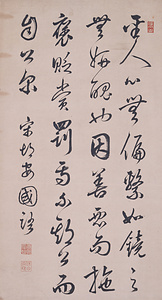 聖人心無偏繫如鏡之
無妍醜也因善惡而施
褒貶賞罰焉不期公而
自公尔 宋胡安國語